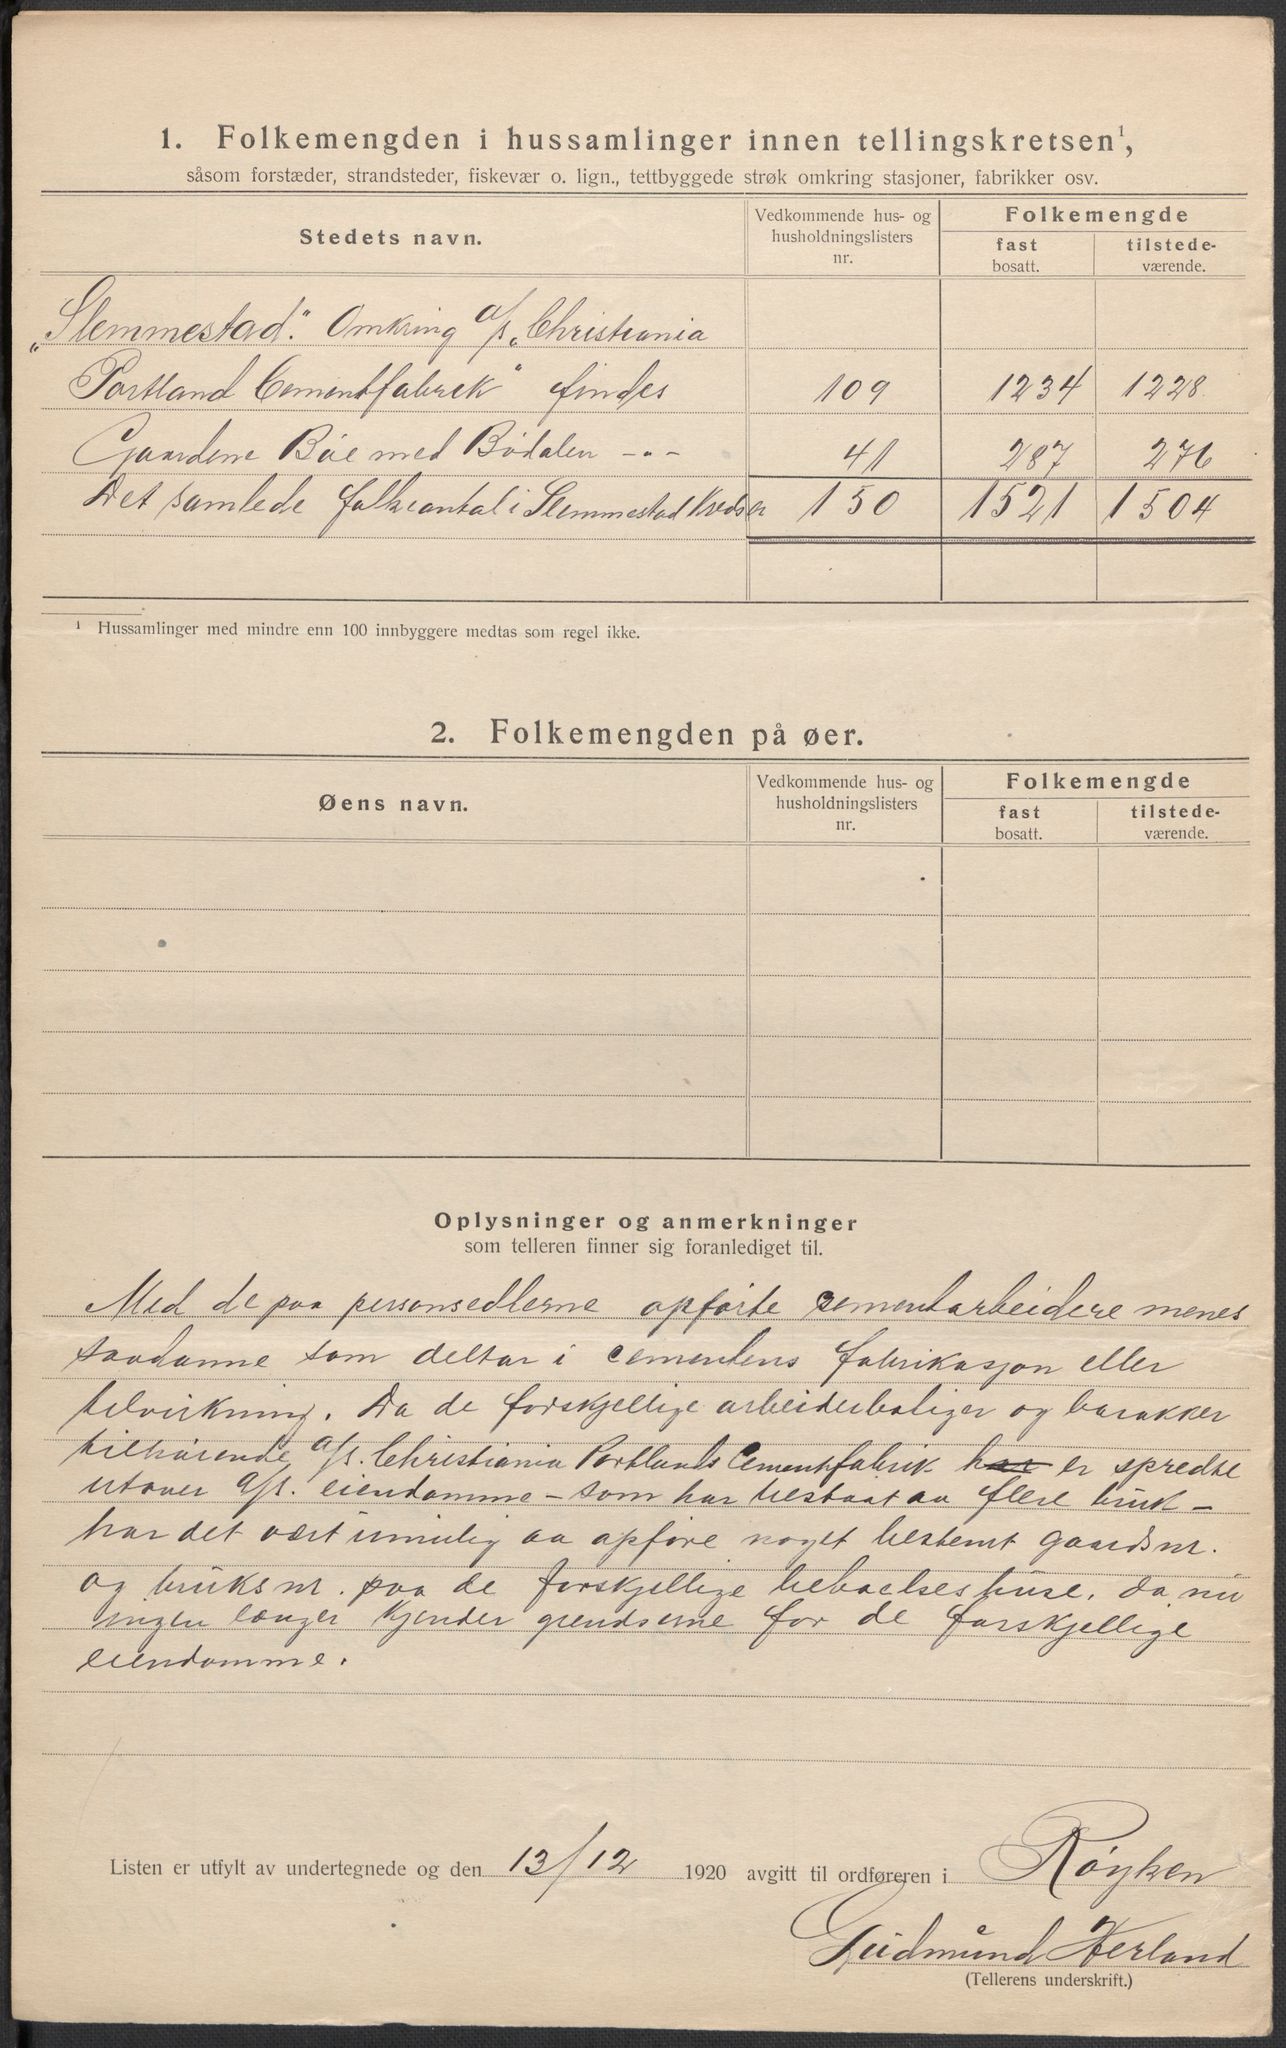 1. Folkemengden i hussamlinger innen tellingskretsen¹,
såsom forstæder, strandsteder, fiskevær o. lign., tettbyggede strøk omkring stasjoner, fabrikker osv.
Stedets navn.
Vedkommende hus- og husholdningslisters nr.
Folkemengde
fast bosatt.
tilstede-værende.
„Slemmestad." Omkring a/s „Christiania
Portland Cementfabrik" findes 109 1234 1228
Gaardene Böe med Bödalen -"- 41 287 276
Det samlede folkeantal i Slemmestad Kreds er 150 1521 1504
¹ Hussamlinger med mindre enn 100 innbyggere medtas som regel ikke.
2. Folkemengden på øer.
Øens navn.
Vedkommende hus- og husholdningslisters nr.
Folkemengde
fast bosatt.
tilstede-værende.
Oplysninger og anmerkninger
som telleren finner sig foranlediget til.
Med de paa personsedlerne opförte cementarbeidere menes
saadanne som deltar i cementens fabrikasjon eller
tilvirkning. Da de forskjellige arbeiderboliger og barakker
tilhörende a/s. Christiania Portlands Cementfabrik har er spredte
utover a/s. eiendomme – som har bestaat av flere bruk –
har det vært umulig aa opföre noget bestemt gaardsnr.
og bruksnr. paa de forskjellige beboelseshuse, da nu
ingen længer kjender grendserne for de forskjellige
eiendomme.
Listen er utfylt av undertegnede og den 13/12 1920 avgitt til ordføreren i Röyken
Gudmund Herland
(Tellerens underskrift.)